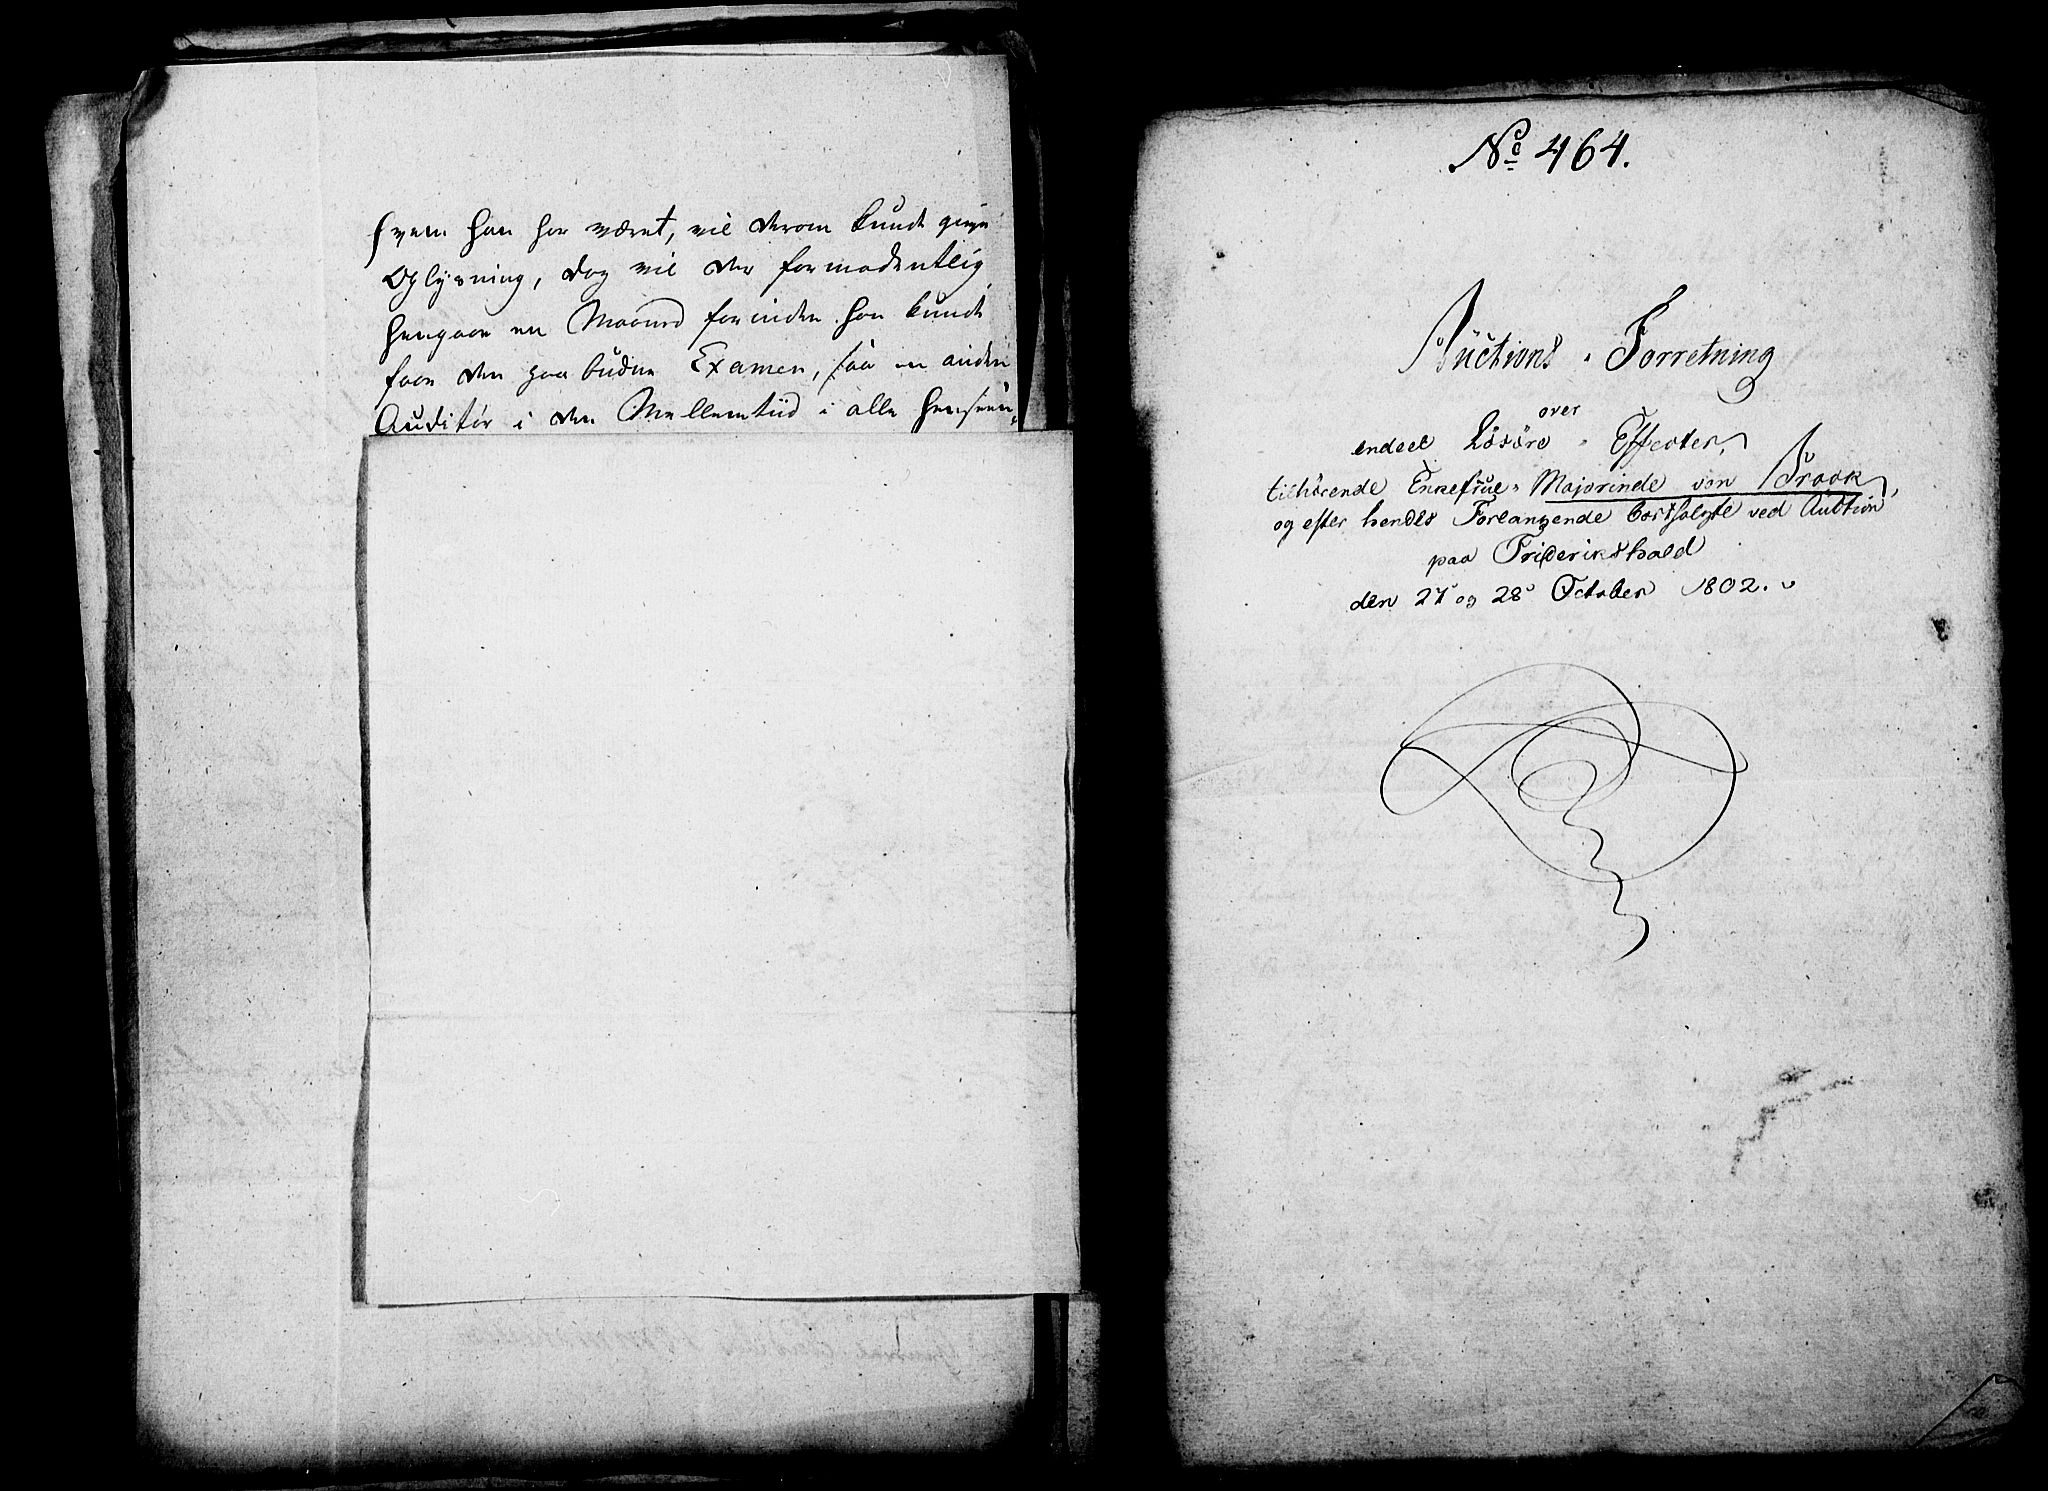 hvem han har været, vil derom kunde give
Oplysning, dog vil der formodentlig
hengaae en Maaned forinden han kunde
faae den paabudne Examen, saa en anden
Auditør i den Mellemtiid i alle henseen-
No 464.
Auctions-Forretning
over
endeel Løsøre-Effecter,
tilhørende Enkefrue Majorinde von
og efter hendes Forlangende bortsolgte ved Auction
paa Friderikshald
den 27 og 28 October 1802.